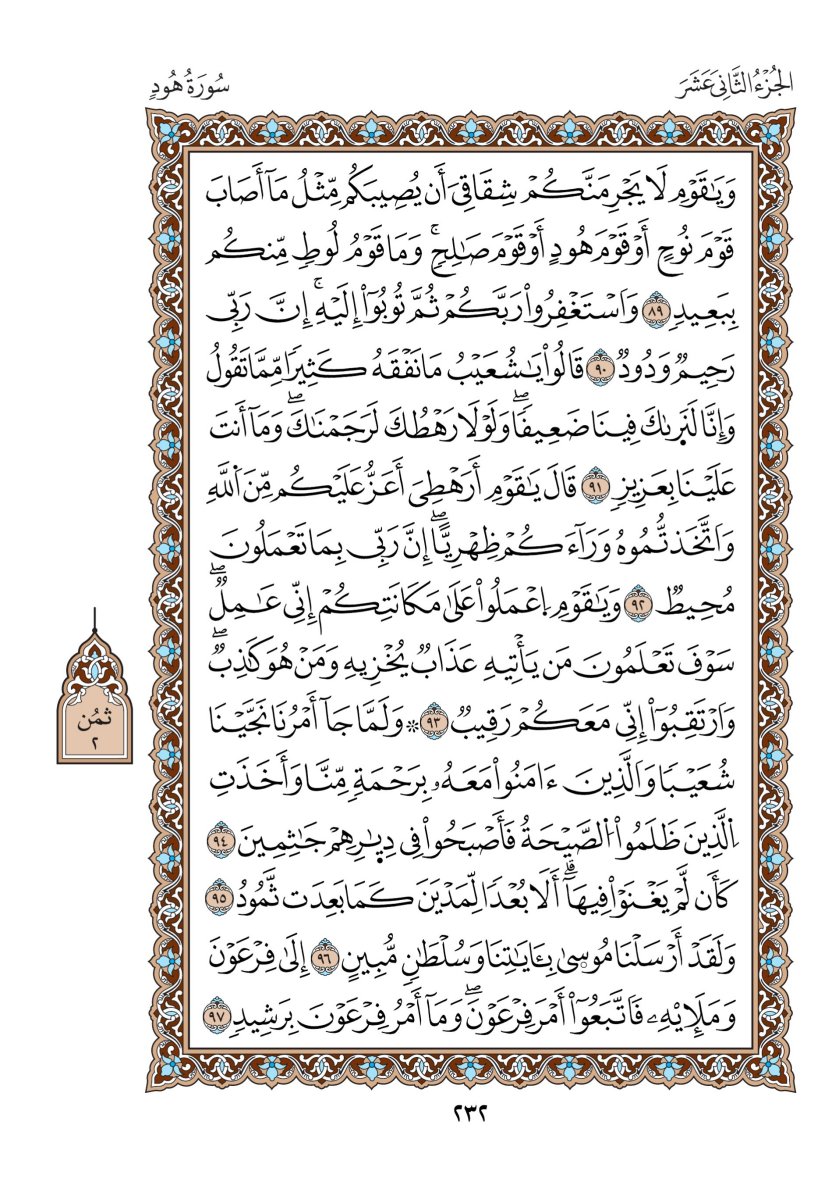 الجُزْءُ الثَّانِىَ عَشَرَ
سُورَةُ هُودٍ
وَيَٰقَوْمِ لَا يَجْرِمَنَّكُمْ شِقَاقِىَ أَن يُصِيبَكُم مِّثْلُ مَآ أَصَابَ
قَوْمَ نُوحٍ أَوْ قَوْمَ هُودٍ أَوْ قَوْمَ صَٰلِحٍۚ وَمَا قَوْمُ لُوطٍ مِّنكُم
بِبَعِيدٍ ٨٩ وَاَسْتَغْفِرُواْ رَبَّكُمْ ثُمَّ تُوبُوٓاْ إِلَيْهِۚ إِنَّ رَبِّى
رَحِيمٌ وَدُودٌ ٩٠ قَالُواْ يَٰشُعَيْبُ مَا نَفْقَهُ كَثِيرًا مِّمَّا تَقُولُ
وَإِنَّا لَنَر۪ىٰكَ فِينَا ضَعِيفًاۖ وَلَوْلَا رَهْطُكَ لَرَجَمْنَٰكَۖ وَمَآ أَنتَ
عَلَيْنَا بِعَزِيزٍ ٩١ قَالَ يَٰقَوْمِ أَرَهْطِىَ أَعَزُّ عَلَيْكُم مِّنَ اَللَّهِ
وَاَتَّخَذتُّمُوهُ وَرَآءَكُمْ ظِهْرِيًّاۖ إِنَّ رَبِّى بِمَا تَعْمَلُونَ
مُحِيطٌ ٩٢ وَيَٰقَوْمِ اِعْمَلُواْ عَلَىٰ مَكَانَتِكُمْ إِنِّى عَٰمِلٌۖ
سَوْفَ تَعْلَمُونَ مَن يَأْتِيهِ عَذَابٌ يُخْزِيهِ وَمَنْ هُوَ كَٰذِبٌۖ
وَاَرْتَقِبُوٓاْ إِنِّى مَعَكُمْ رَقِيبٌ ٩٣ ۞ وَلَمَّا جَآ أَمْرُنَا نَجَّيْنَا
شُعَيْبًا وَالَّذِينَ ءَامَنُواْ مَعَهُۥ بِرَحْمَةٍ مِّنَّا وَأَخَذَتِ
اِلَّذِينَ ظَلَمُواْ اُلصَّيْحَةُ فَأَصْبَحُواْ فِى دِيٰ۪رِهِمْ جَٰثِمِينَ ٩٤
كَأَن لَّمْ يَغْنَوْاْ فِيهَآۗ أَلَا بُعْدًا لِّمَدْيَنَ كَمَا بَعِدَت ثَّمُودُ ٩٥
وَلَقَدْ أَرْسَلْنَا مُوس۪ىٰ بِـَٔايَٰتِنَا وَسُلْطَٰنٍ مُّبِينٍ ٩٦ إِلَىٰ فِرْعَوْنَ
وَمَلَإِيْهِۦ فَاتَّبَعُوٓاْ أَمْرَ فِرْعَوْنَۖ وَمَآ أَمْرُ فِرْعَوْنَ بِرَشِيدٍ ٩٧
ثمُن
٢
٢٣٢